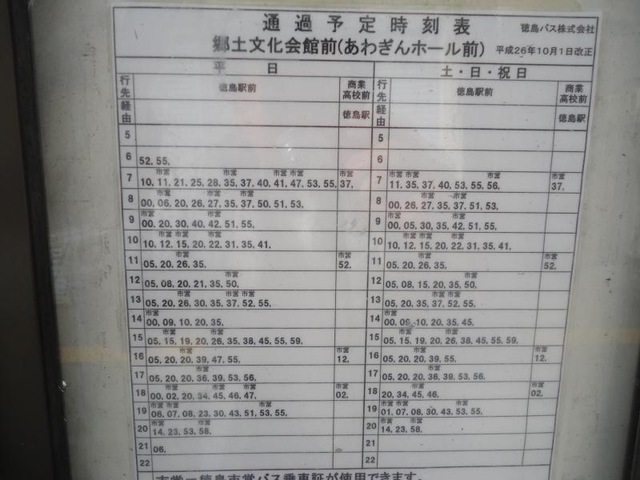 通過予定時刻表 徳島バス株式会社
郷土文化会館前(あわぎんホール前) 平成26年10月1日改正
平 日 土・日・祝日
行先 徳島駅前 商業高校前 行先 徳島駅前 商業高校前
経由 徳島駅 経由 徳島駅
5 5
6 52. 55. 6
市営 市営 市営 市営 市営 市営 市営 市営
7 10. 11. 21. 25. 28. 35. 37. 40. 41. 47. 53. 55. 37. 7 11. 35. 37. 40. 53. 55. 56. 37.
8 00. 06. 20. 26. 27. 35. 37. 50. 51. 53. 8 00. 26. 27. 35. 37. 51. 53.
9 00. 20. 30. 40. 42. 51. 55. 9 00. 05. 30. 35. 42. 51. 55.
10 10. 12. 15. 20. 22. 31. 35. 41. 10 10. 12. 15. 20. 22. 31. 35. 41.
11 05. 20. 26. 35. 52. 11 05. 20. 26. 35. 52.
12 05. 08. 20. 21. 35. 50. 12 05. 08. 15. 20. 35. 50.
13 05. 20. 26. 30. 35. 37. 52. 55. 13 05. 20. 35. 37. 52. 55.
14 00. 09. 10. 20. 35. 14 00. 09. 10. 20. 35. 45.
15 05. 15. 19. 20. 26. 35. 38. 45. 55. 59. 15 05. 15. 19. 20. 26. 38. 45. 55. 59.
16 05. 20. 20. 39. 47. 55. 12. 16 05. 20. 20. 39. 55. 12.
17 05. 20. 20. 36. 39. 53. 56. 17 05. 20. 20. 36. 39. 53. 56.
18 00. 02. 20. 34. 45. 46. 47. 02. 18 20. 34. 45. 46. 02.
19 06. 07. 08. 23. 30. 43. 51. 53. 55. 19 01. 07. 08. 30. 43. 53. 55.
20 14. 23. 53. 58. 20 14. 23. 58.
21 06. 21
22 22
市営=徳島市営バス乗車証が使用できます。